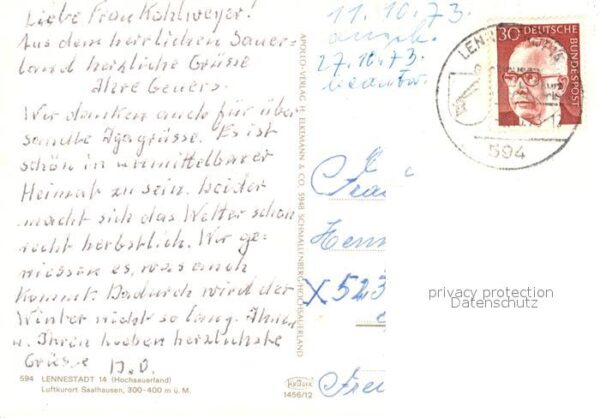 Liebe Frau Kohlmeyer!
Aus dem herrlichen Sauer-
land herzliche Grüsse
Ihre Geuers.
Wir danken auch für über
sandte Igagrüsse. Es ist
schön in unmittelbarer
Heimat zu sein. Leider
macht sich das Wetter schon
recht herbstlich. Wir ge-
niessen es, was auch
kommt. Dadurch wird der
Winter nicht so lang. Ihnen
u. Ihren lieben herzlichste
Grüsse D.O.
594 LENNESTADT 14 (Hochsauerland)
Luftkurort Saalhausen, 300-400 m ü. M.
APOLLO-VERLAG H. ELKEMANN & CO. 5948 SCHMALLENBERG/HOCHSAUERLAND
KRÜGER
1456/12
11.10.73
27.10.73
beantw.
30 DEUTSCHE BUNDESPOST
LENNESTADT
594
Frau
Henn
X 523
Frei
privacy protection
Datenschutz